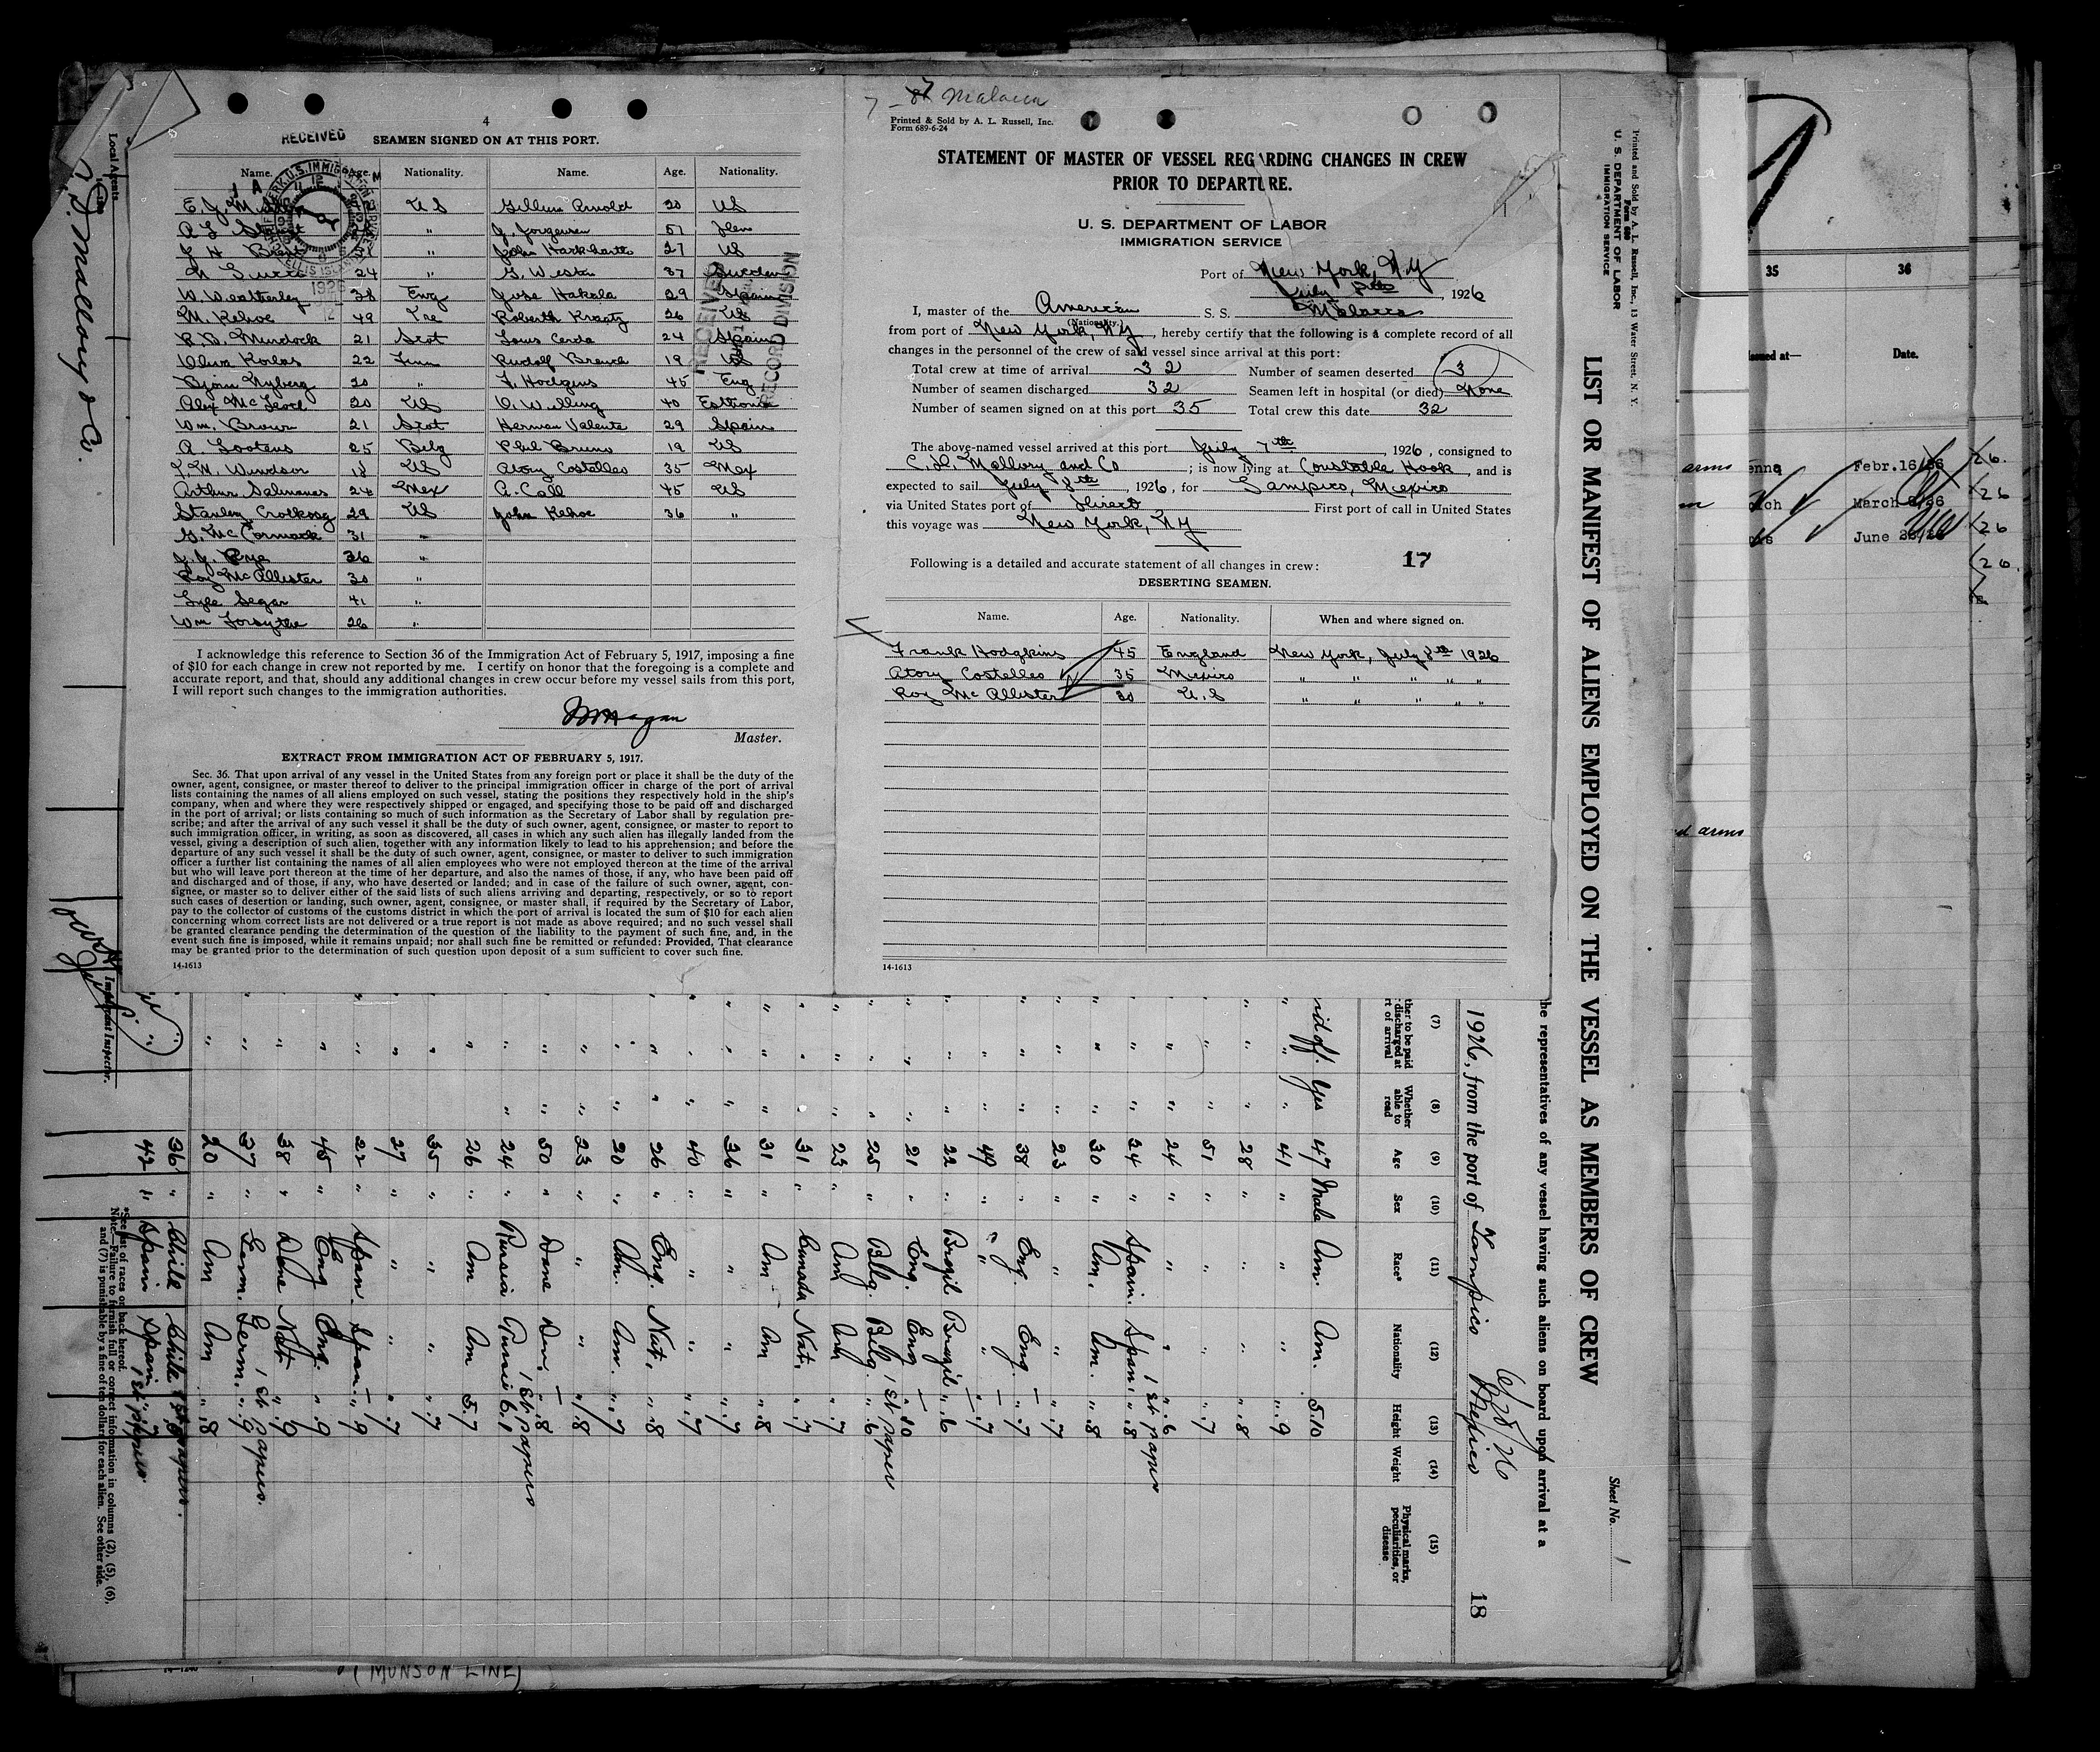 4
RECEIVED
SEAMEN SIGNED ON AT THIS PORT.
Name. Age. Nationality. Name. Age. Nationality.
U S Gillum Arnold 20 US
" J. Jorgensen 51
" John 27 US
24 " G. West 37 Sweden
W Weatherley 38 Eng Jose Hakala 29 Spain
M. Kehoe 49 Ire Roberth Krantz 26 US
R. D. Murdock 21 Scot Louis Cerda 24 Spain
Korlas 22 Finn Rudolf 19 US
Bjorn Nyberg 20 " F. Hodgins 45 Eng
Alex McLeod 20 US O. Willing 40 Esthonia
Wm. Brown 21 Scot Herman Valente 29 Spain
A. Lootens 25 Belg Phil Bruno 19 US
Windsor 18 US Atory Costelles 35 Mex
Arthur Salmanas 24 Mex A. Call 45 US
Stanley 29 US John Kehoe 36 "
G. McCormack 31 "
J. J. 36 "
Roy McAllister 30 "
Lyle Segar 41 "
Wm Forsythe 26 "
I acknowledge this reference to Section 36 of the Immigration Act of February 5, 1917, imposing a fine
of $10 for each change in crew not reported by me. I certify on honor that the foregoing is a complete and
accurate report, and that, should any additional changes in crew occur before my vessel sails from this port,
I will report such changes to the immigration authorities.
Master.
EXTRACT FROM IMMIGRATION ACT OF FEBRUARY 5, 1917.
Sec. 36. That upon arrival of any vessel in the United States from any foreign port or place it shall be the duty of the
owner, agent, consignee, or master thereof to deliver to the principal immigration officer in charge of the port of arrival
lists containing the names of all aliens employed on such vessel, stating the positions they respectively hold in the ship's
company, when and where they were respectively shipped or engaged, and specifying those to be paid off and discharged
in the port of arrival; or lists containing so much of such information as the Secretary of Labor shall by regulation pre-
scribe; and after the arrival of any such vessel it shall be the duty of such owner, agent, consignee, or master to report to
such immigration officer, in writing, as soon as discovered, all cases in which any such alien has illegally landed from the
vessel, giving a description of such alien, together with any information likely to lead to his apprehension; and before the
departure of any such vessel it shall be the duty of such owner, agent, consignee, or master to deliver to such immigration
officer a further list containing the names of all alien employees who were not employed thereon at the time of the arrival
but who will leave port thereon at the time of her departure, and also the names of those, if any, who have been paid off
and discharged and of those, if any, who have deserted or landed; and in case of the failure of such owner, agent, con-
signee, or master so to deliver either of the said lists of such aliens arriving and departing, respectively, or so to report
such cases of desertion or landing, such owner, agent, consignee, or master shall, if required by the Secretary of Labor,
pay to the collector of customs of the customs district in which the port of arrival is located the sum of $10 for each alien
concerning whom correct lists are not delivered or a true report is not made as above required; and no such vessel shall
be granted clearance pending the determination of the question of the liability to the payment of such fine, and, in the
event such fine is imposed, while it remains unpaid; nor shall such fine be remitted or refunded: Provided, That clearance
may be granted prior to the determination of such question upon deposit of a sum sufficient to cover such fine.
14-1613
RECEIVED
RECORD DIVISION
Malacca
Printed & Sold by A. L. Russell, Inc.
Form 689-6-24
STATEMENT OF MASTER OF VESSEL REGARDING CHANGES IN CREW
PRIOR TO DEPARTURE.
U. S. DEPARTMENT OF LABOR
IMMIGRATION SERVICE
Port of New York, N.Y
July 8th, 1926
I, master of the American S. S. Malacca
(Nationality.)
from port of New York, NY, hereby certify that the following is a complete record of all
changes in the personnel of the crew of said vessel since arrival at this port:
Total crew at time of arrival 32 Number of seamen deserted 3
Number of seamen discharged 32 Seamen left in hospital (or died) None
Number of seamen signed on at this port 35 Total crew this date 32
The above-named vessel arrived at this port July 7th, 1926, consigned to
C. D. Mallory and Co; is now lying at Constable Hook, and is
expected to sail July 8th, 1926, for Tampico, Mexico
via United States port of Direct First port of call in United States
this voyage was New York, NY
Following is a detailed and accurate statement of all changes in crew: 17
DESERTING SEAMEN.
Name. Age. Nationality. When and where signed on.
Frank Hodgkins 45 England New York, July 8th 1926
Atory Costelles 35 Mexico " " " " "
Roy McAllister 30 U.S " " " " "
14-1613
Printed and Sold by A. L. Russell, Inc., 13 Water Street, N. Y.
Form 680
U. S. DEPARTMENT OF LABOR
IMMIGRATION SERVICE
LIST OR MANIFEST OF ALIENS EMPLOYED ON THE VESSEL AS MEMBERS OF CREW
Sheet No. 1
the representatives of any vessel having such aliens on board upon arrival at a
1926, from the port of Tampico Mexico
18
(7) (8) (9) (10) (11) (12) (13) (14) (15)
Whether able to read Age Sex Race* Nationality Height Weight Physical marks, peculiarities, or disease
Yes 47 Male Am. Am. 5.10
41 " " " " .9
28 " " " " .8
51 " " " " .7
24 " " " " .6
34 " Spain. Span. " .8 1st paper
30 " Am. Am. " .8
23 " " " " .7
38 " Eng. Eng. " .7
49 " " " " .7
22 " Brazil Brazil " .6
21 " Eng. Eng " .10
25 " Belg. Belg. " .6 1st paper
23 " Am Am " .7
31 " Canada Nat. " .7
31 " Am Am " .8
36 " " " " .7
40 " " " " .7
26 " Eng. Nat. " .8
20 " Am. Am. " .7
23 " " " " .8
50 " Dane Den. " .8
24 " Russia 6.1 1st papers
26 " Am Am 5.7
35 " " " " .7
27 " " " " .7
22 " Span. Span. " .9
45 " Eng Eng. " .9
38 " Dane Nat. " .9
37 " Germ. Germ. " .9 1st papers.
20 " Am Am " .8
36 " Chile Chile
42 " Spain Spain
*See list of races on back hereof.
Note.—Failure to furnish full or correct information in columns (2), (5), (6),
and (7) is punishable by a fine of ten dollars for each alien. See other side.
Immigrant Inspector.
Local Agents
D. Mallory & Co.
(MUNSON LINE)
35 36
Issued at— Date.
Febr.16/26
March
June
arms